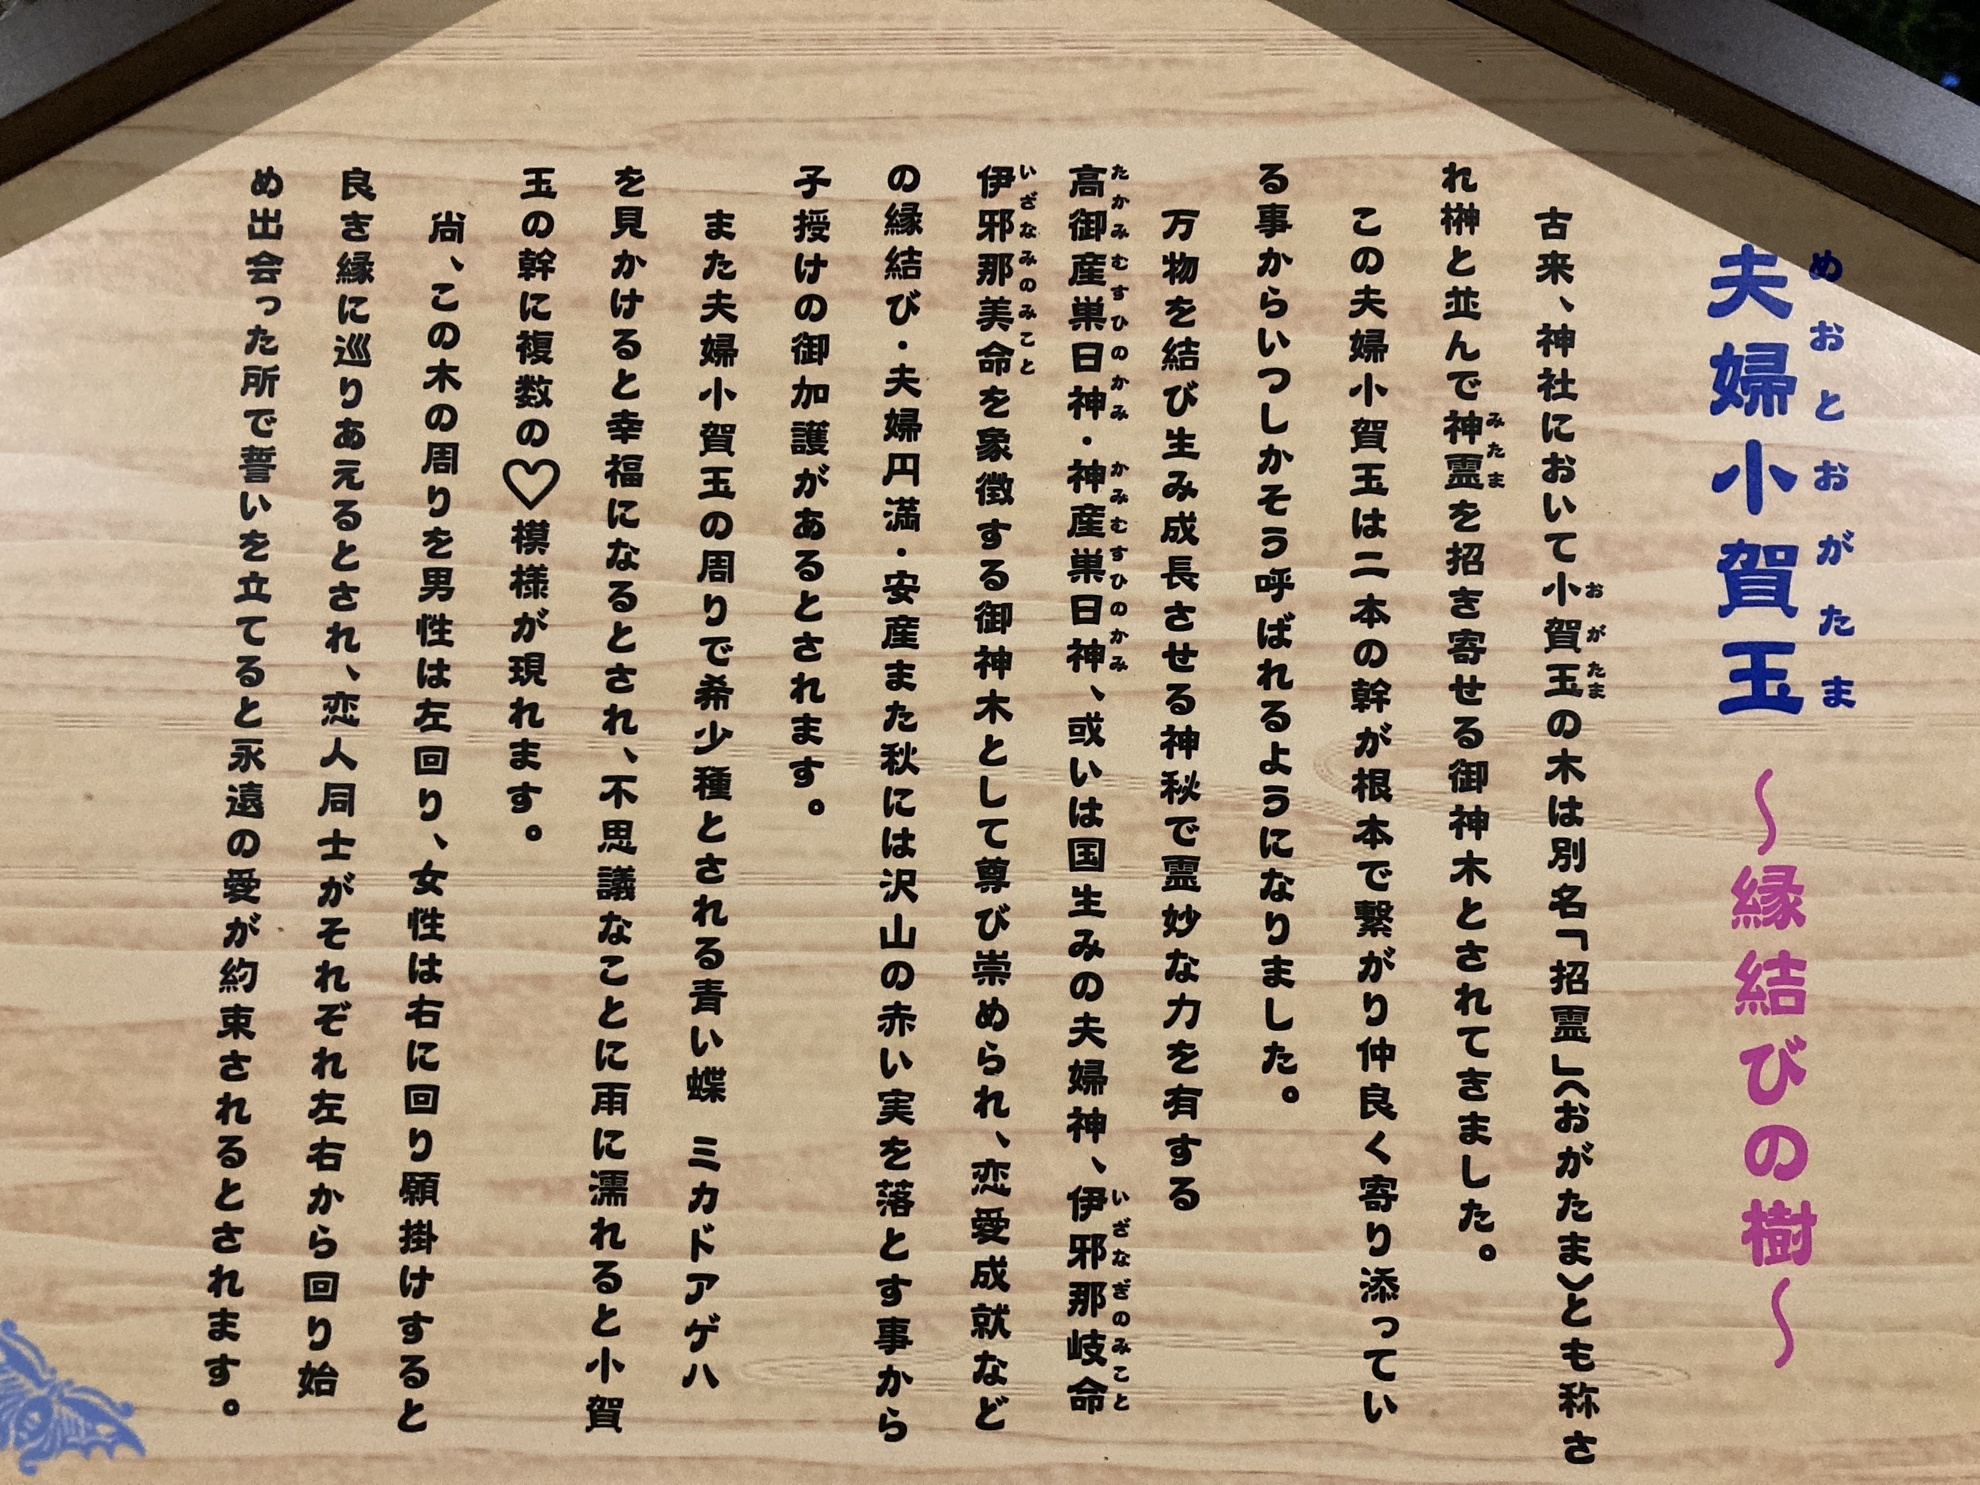 夫婦小賀玉 ～縁結びの樹～
めおとおがたま
古来、神社において小賀玉の木は別名「招霊」(おがたま)とも称さ
おがたま
れ榊と並んで神霊を招き寄せる御神木とされてきました。
みたま
この夫婦小賀玉は二本の幹が根本で繋がり仲良く寄り添ってい
る事からいつしかそう呼ばれるようになりました。
万物を結び生み成長させる神秘で霊妙な力を有する
高御産巣日神・神産巣日神、或いは国生みの夫婦神、伊邪那岐命
たかみむすひのかみ かみむすひのかみ いざなぎのみこと
伊邪那美命を象徴する御神木として尊び崇められ、恋愛成就など
いざなみのみこと
の縁結び・夫婦円満・安産また秋には沢山の赤い実を落とす事から
子授けの御加護があるとされます。
また夫婦小賀玉の周りで希少種とされる青い蝶 ミカドアゲハ
を見かけると幸福になるとされ、不思議なことに雨に濡れると小賀
玉の幹に複数の♡模様が現れます。
尚、この木の周りを男性は左回り、女性は右に回り願掛けすると
良き縁に巡りあえるとされ、恋人同士がそれぞれ左右から回り始
め出会った所で誓いを立てると永遠の愛が約束されるとされます。